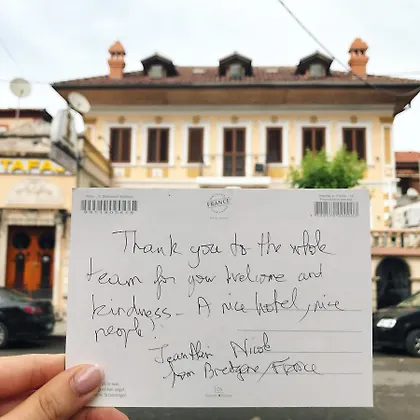 TAFA
FRANCE
Thank you to the whole
team for your welcome and
kindness - A nice hotel, nice
people!
Nicole
from Bretagne/France